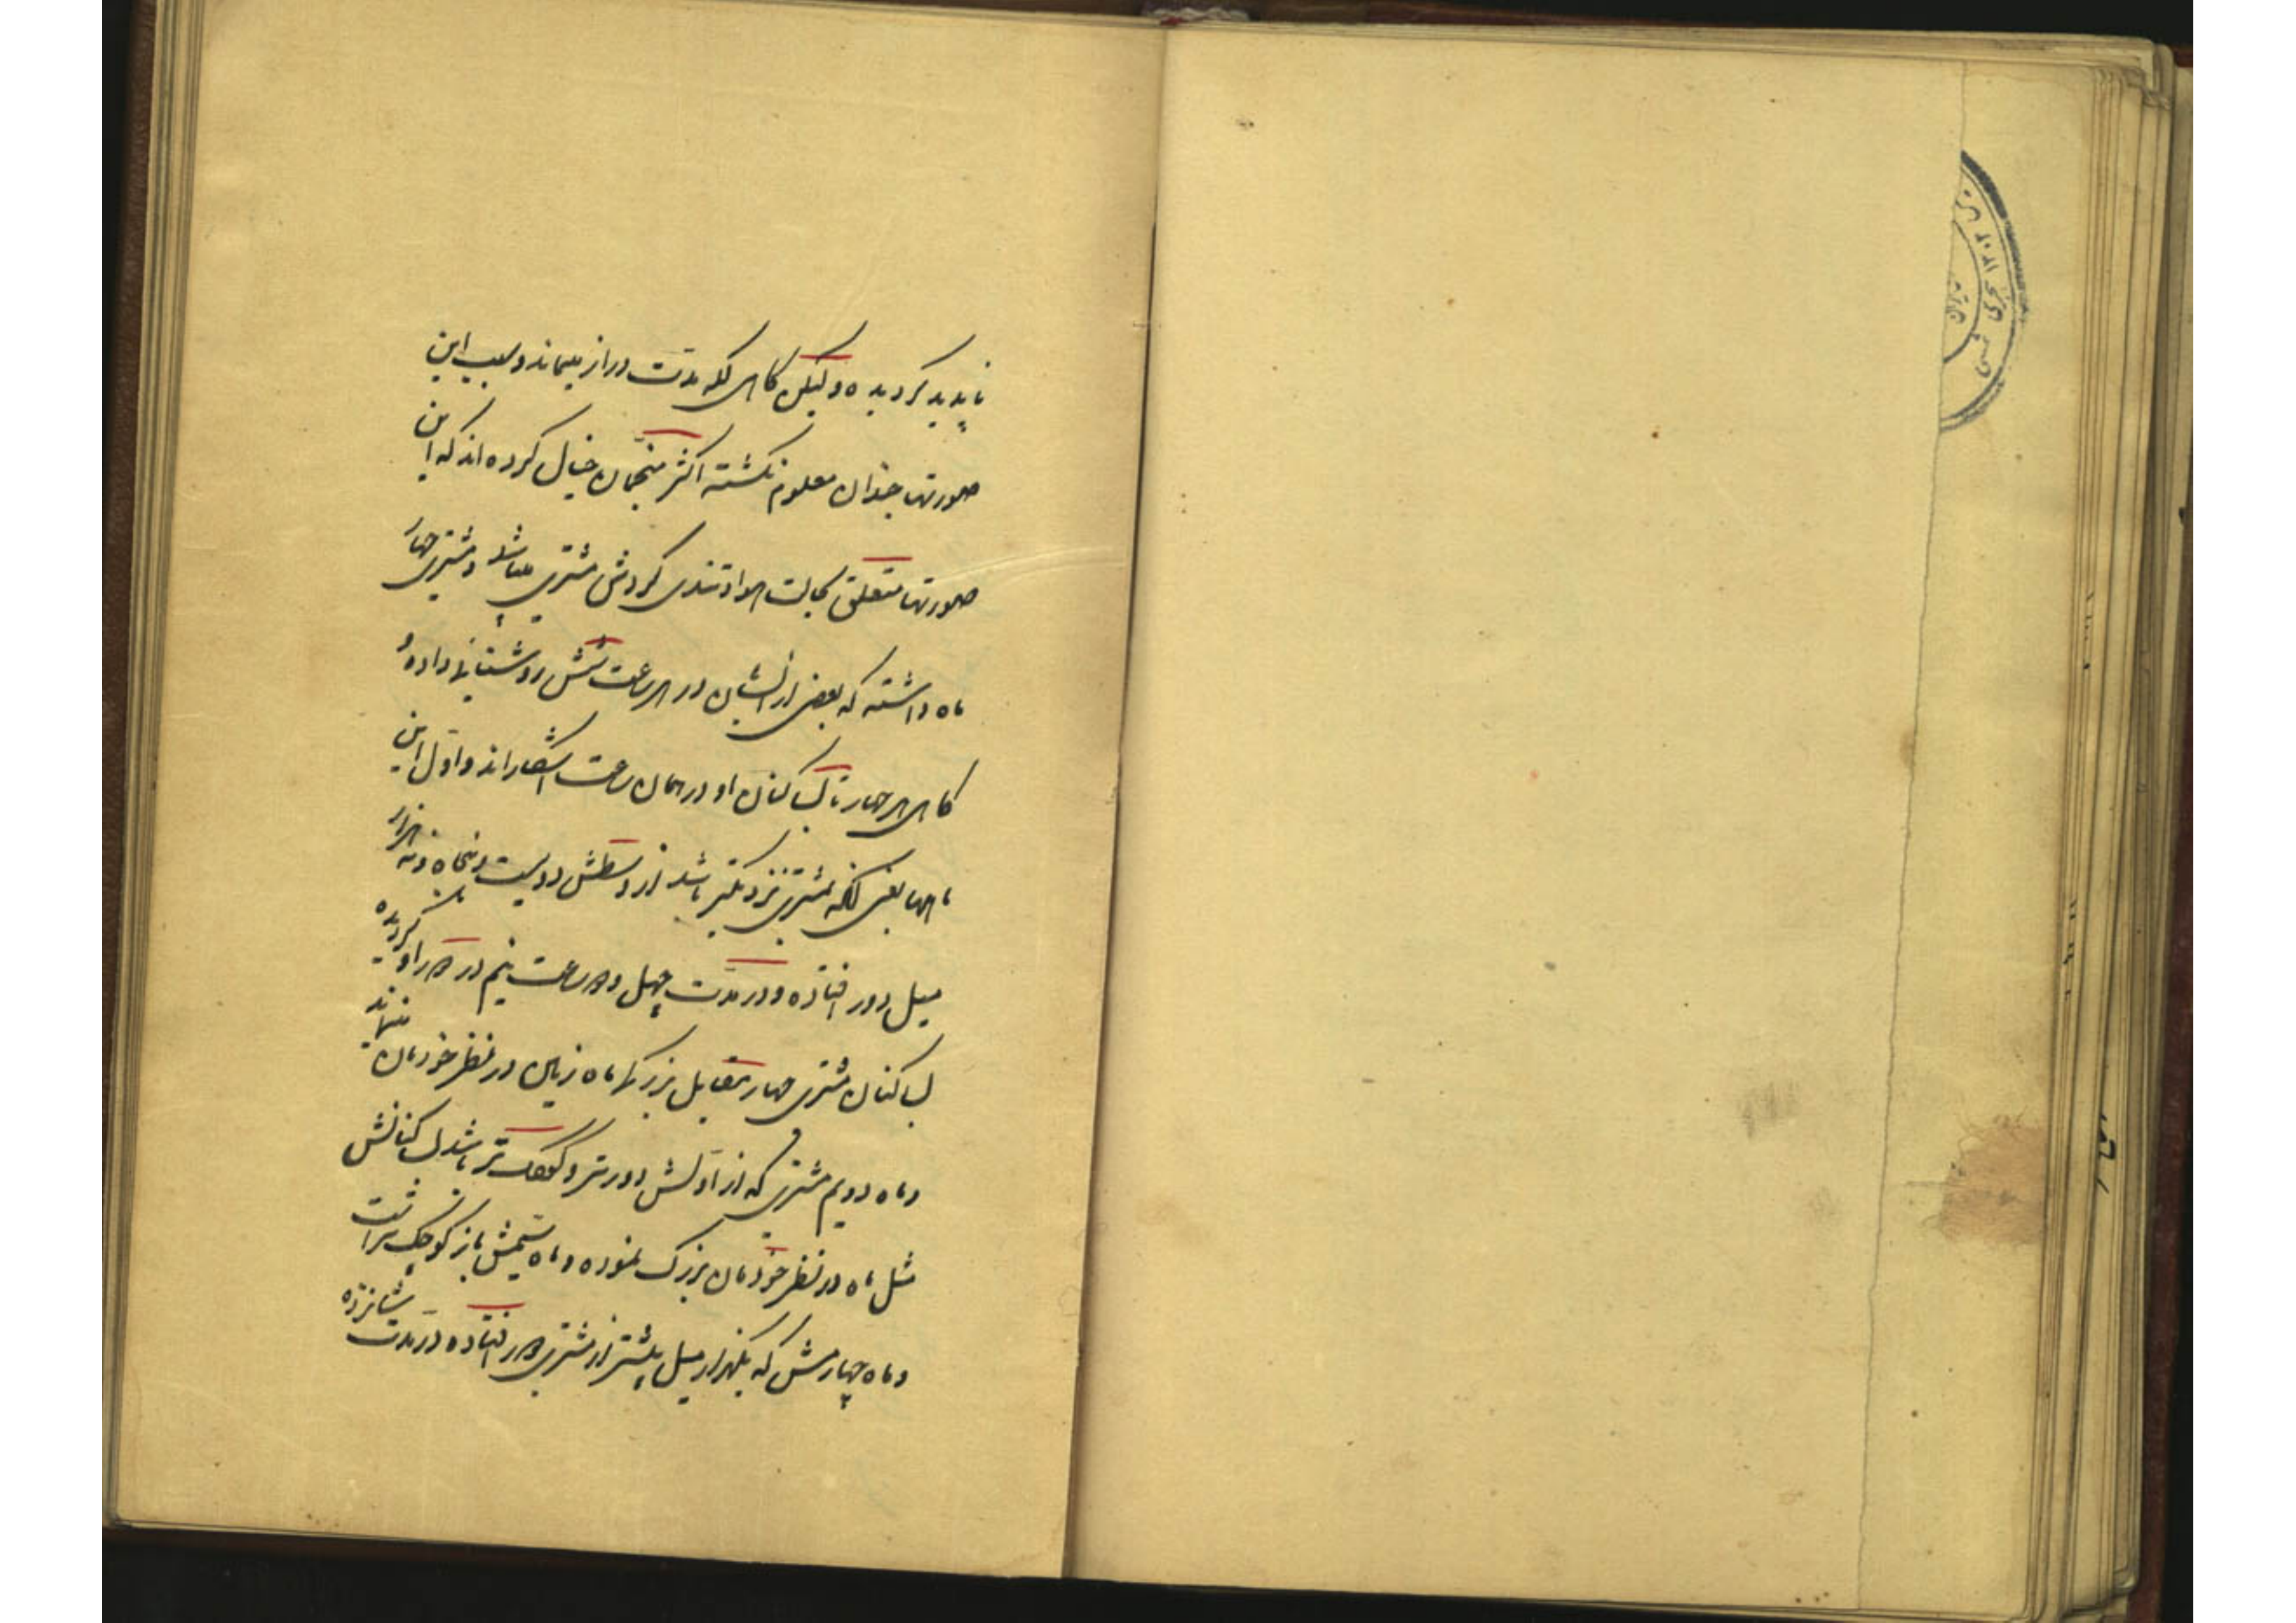 ناپدید کردیده ولیکن کاهی لکه مدت دراز میماند و سبب این
صورتها چندان معلوم نکشته اکثر منجمان خیال کرده اند که این
صورتها متعلق بحالت هوا و تندی کردش مشتری میباشد و مشتری چهار
ماه داشته که بعضی از ایشان در هر ساعت شبش روشنایی داده و
کاهی هر چهار تا بساکنان او در همان ساعت آشکار اند و اول این
ماهها یعنی آنکه بمشتری نزدیکتر باشد از وسطش دویست و پنجاه و نه هزار
میل دور افتاده و در مدت چهل و دو ساعت نیم در دور او کردیده
بساکنان مشتری چهار مقابل بزرکی ماه زمین در نظر خودمان مینماید
و ماه دویم مشتری که از اولش دورتر و کوچک تر باشد بساکنانش
مثل ماه در نظر خودمان بزرک نموده و ماه سیمش باز کوچک تر است
و ماه چهارمش که یکهزار میل بیشتر از مشتری دور افتاده در مدت شانزده